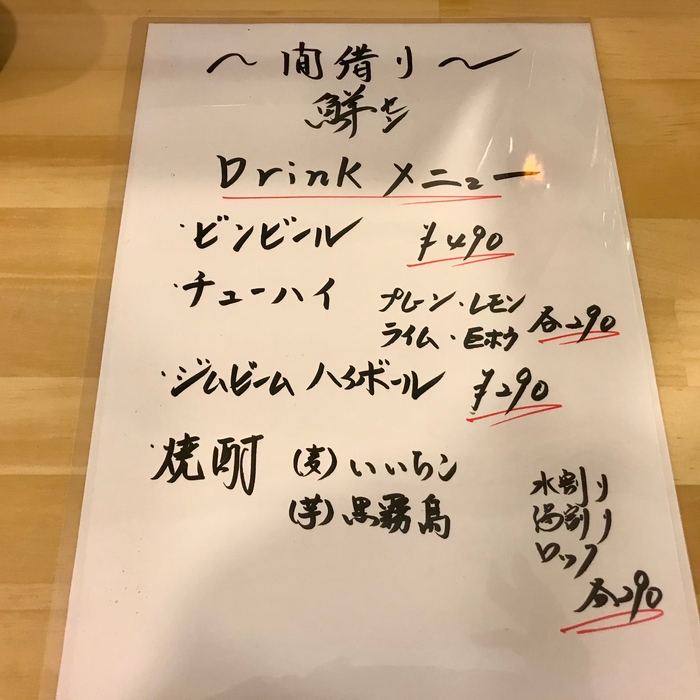 ～間借り～
鮮セン
Drinkメニュー
・ビンビール ¥490
・チューハイ プレーン・レモン
ライム・巨ホウ 各290
・ジムビームハイボール ¥290
・焼酎 (麦)いいちこ
(芋)黒霧島
水割り
湯割り
ロック
各290